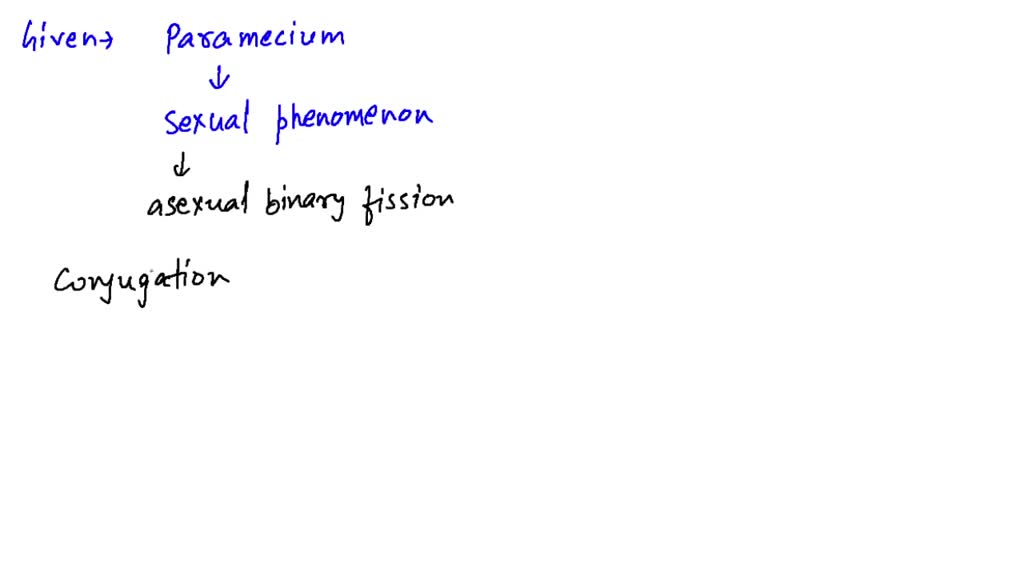 Given → Paramecium
↓
sexual phenomenon
↓
asexual binary fission
Conjugation